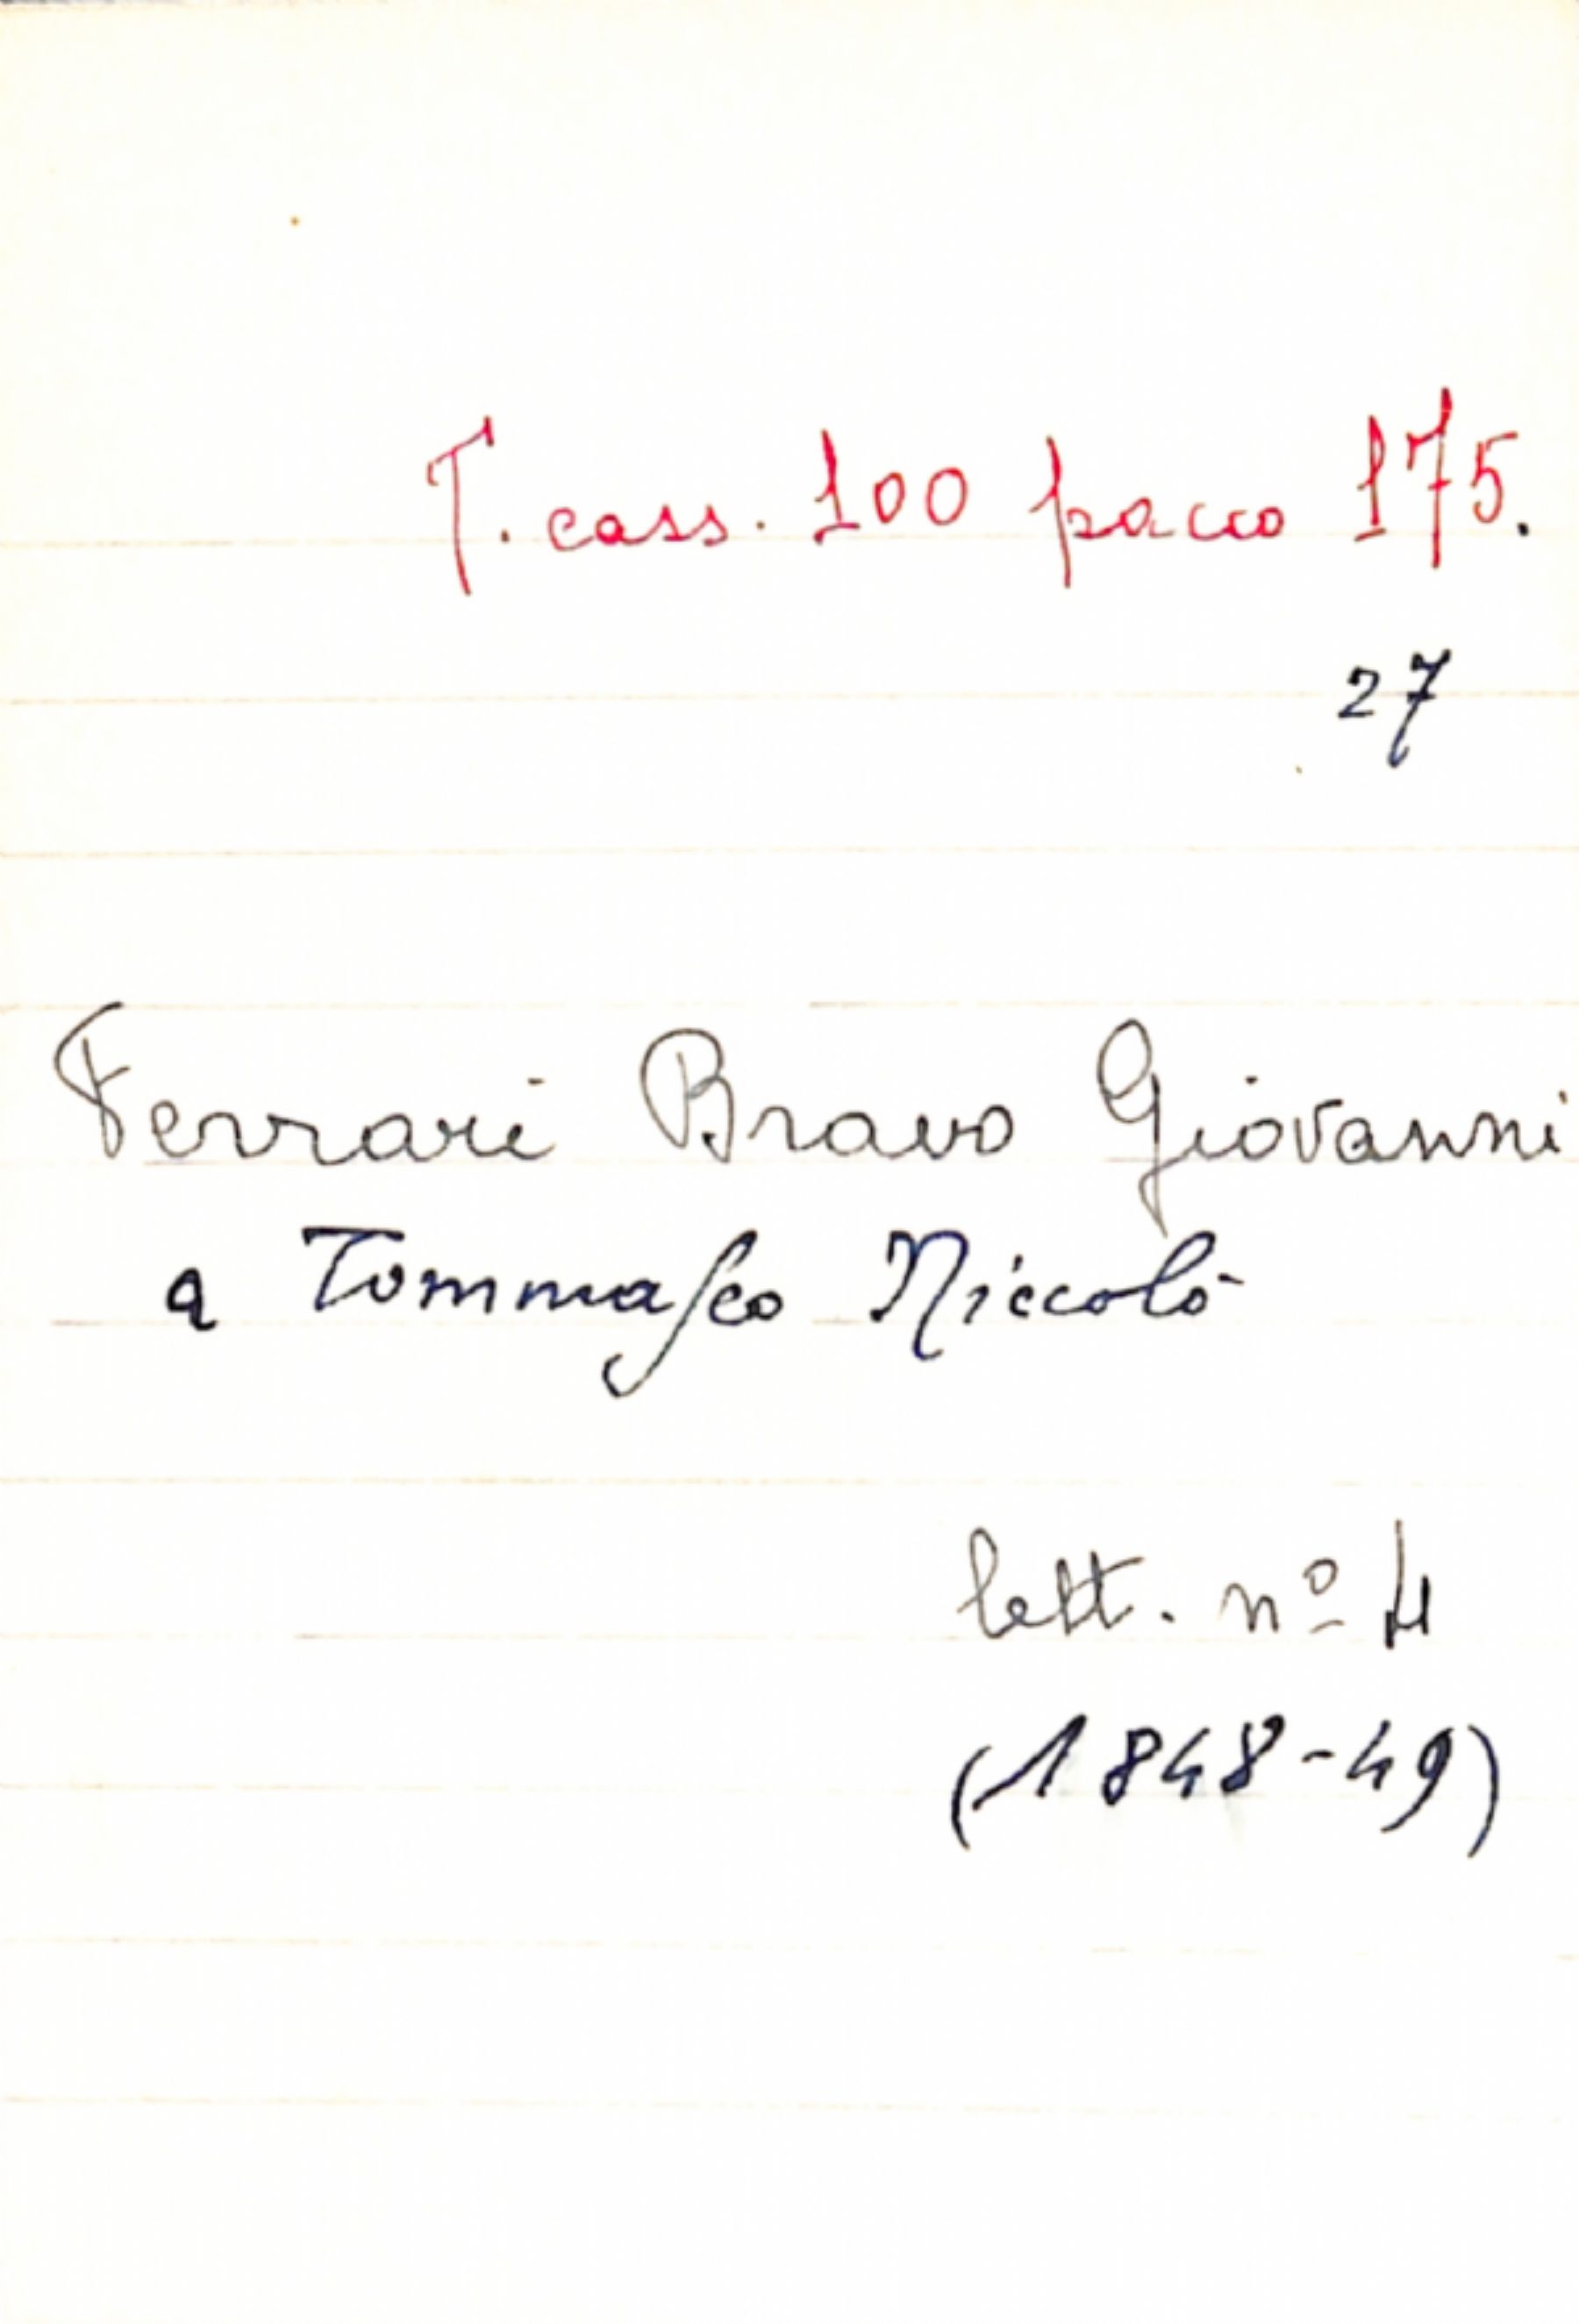 T. cass. 100 pacco 175.
27
Ferrari Bravo Giovanni
a Tommaseo Niccolò
lett. nº 4
(1848-49)